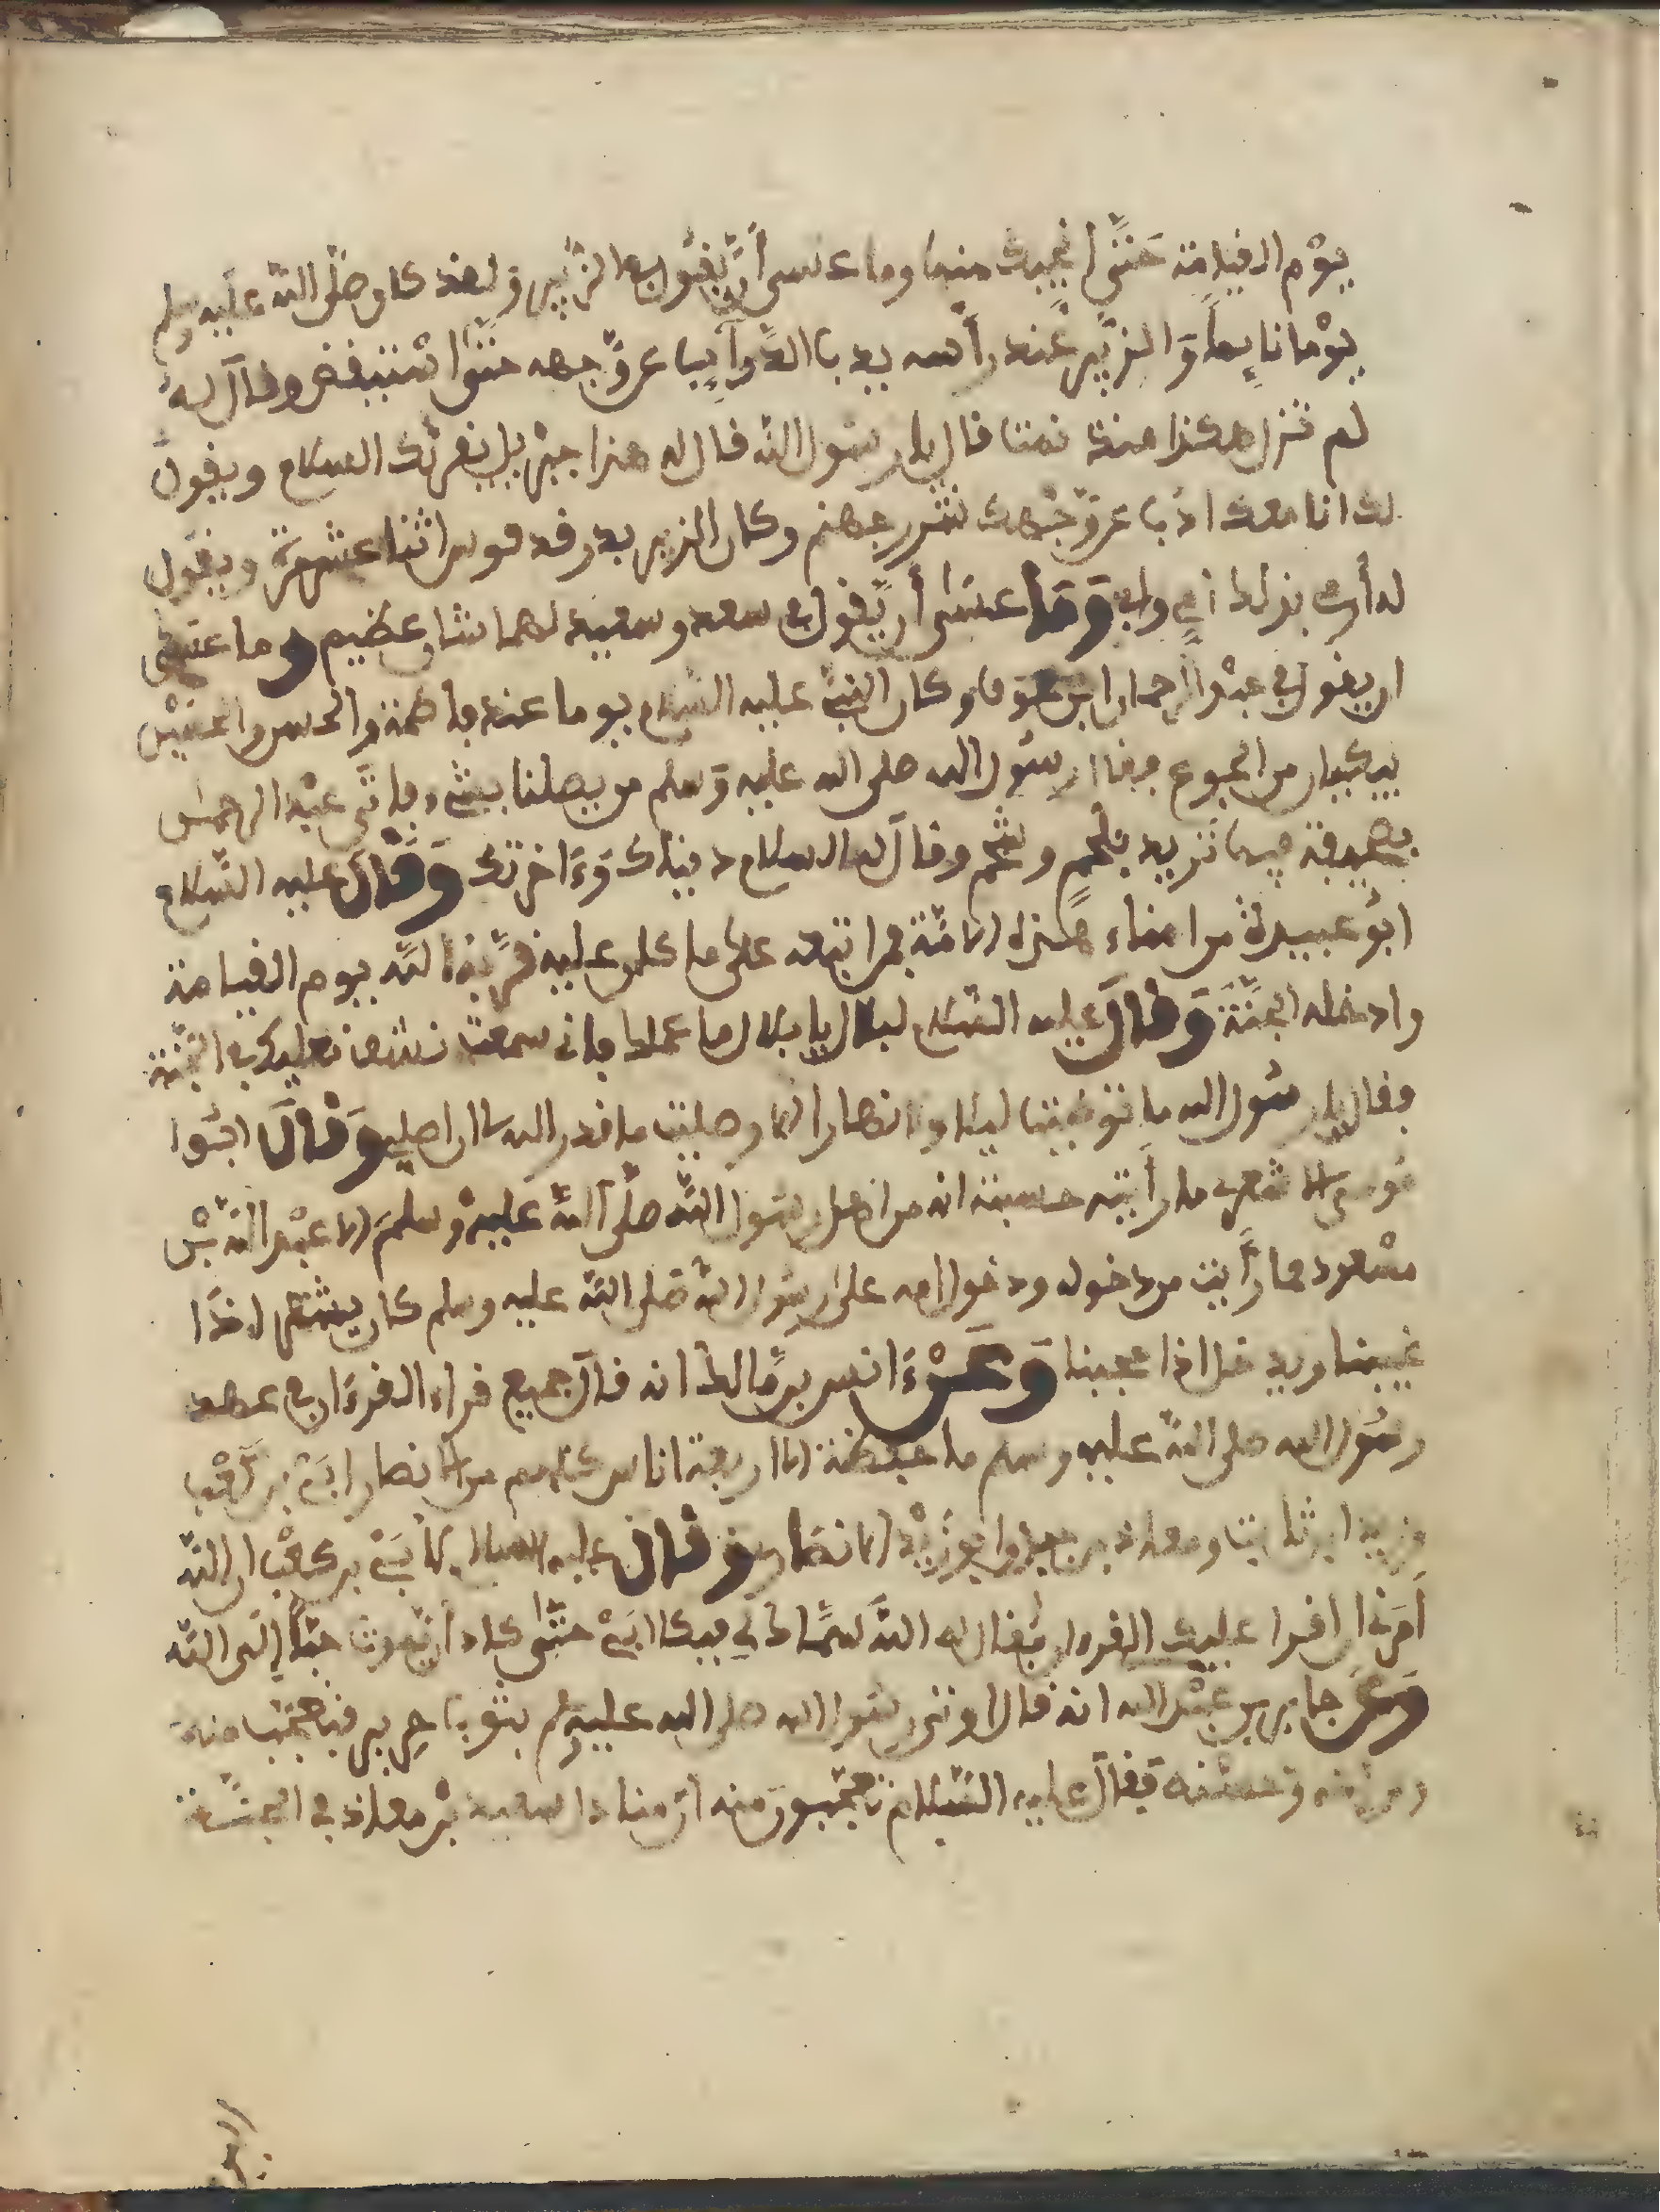 يوم القيامة حتى انجيك منها وما عسى أن يقول في الزبير ولقد كان صلى الله عليه وسلم
يوما نايما والزبير عند رأسه يدب الذباب عن وجهه حتى استيقض وقال له
لم تزل هكذا منذ نمت قال يا رسول الله قال له هذا جبريل يقرئك السلام ويقول
لك انا معك اذب عن وجهك شرر جهنم وكان الزبير يدفد قوس اثنا عشر مرة ويقول
له أرم بذلك أمي وابي وما عسى أن يقول في سعد وسعيد لهما شان عظيم وما عسى
ان يقول في عبد الرحمان ابن عوف وكان النبي عليه السلام يوما عنده فاطمة والحسن والحسين
يبكيان من الجوع فقال رسول الله صلى الله عليه وسلم من يصلنا بشيء فاتى عبد الرحمن
بصحيفة فيها ثريد بلحم وشحم وقال له السلام دنياك وءاخرتك وقال عليه السلام
ابو عبيدة من امناء هذه الامة فمن اتبعه على ما كان عليه قربه الله يوم القيامة
وادخله الجنة وقال عليه السلام لبلال يا بلال ما عملك فاني سمعت نشف نعليك في الجنة
فقال يا رسول الله ما توضيت ليلا ولا نهارا الا وصليت ما قدر الله لي ان اصلي وقال ابو
موسى الاشعري ما رأيته حسبته انه من اهل رسول الله صلى الله عليه وسلم الا عبد الله بن
مسعود مما رأيت من دخوله ودخول امه على رسول الله صلى الله عليه وسلم كان يستر اذا
غيبنا ويدخل اذا حجبنا وعن ءانس بن مالك انه قال جميع قراء القرءان في عهد
رسول الله صلى الله عليه وسلم ما حفظه الا اربعة اناس كلهم من الانصار ابي بن كعب
وزيد ابن ثابت ومعاذ بن جبل وابو زيد الانصاري وقال عليه السلام لابي بن كعب ان الله
أمرني ان اقرا عليك القرءان فقال له الله سماك لي فبكا ابي حتى كاد ان يموت حبا إلى الله
وعن جابر بن عبد الله انه قال اوتي رسول الله صلى الله عليه وسلم بثوب حرير فتعجب منه
ومن لينه وحسنه فقال عليه السلام تعجبون منه ان مناديل سعد بن معاذ في الجنة